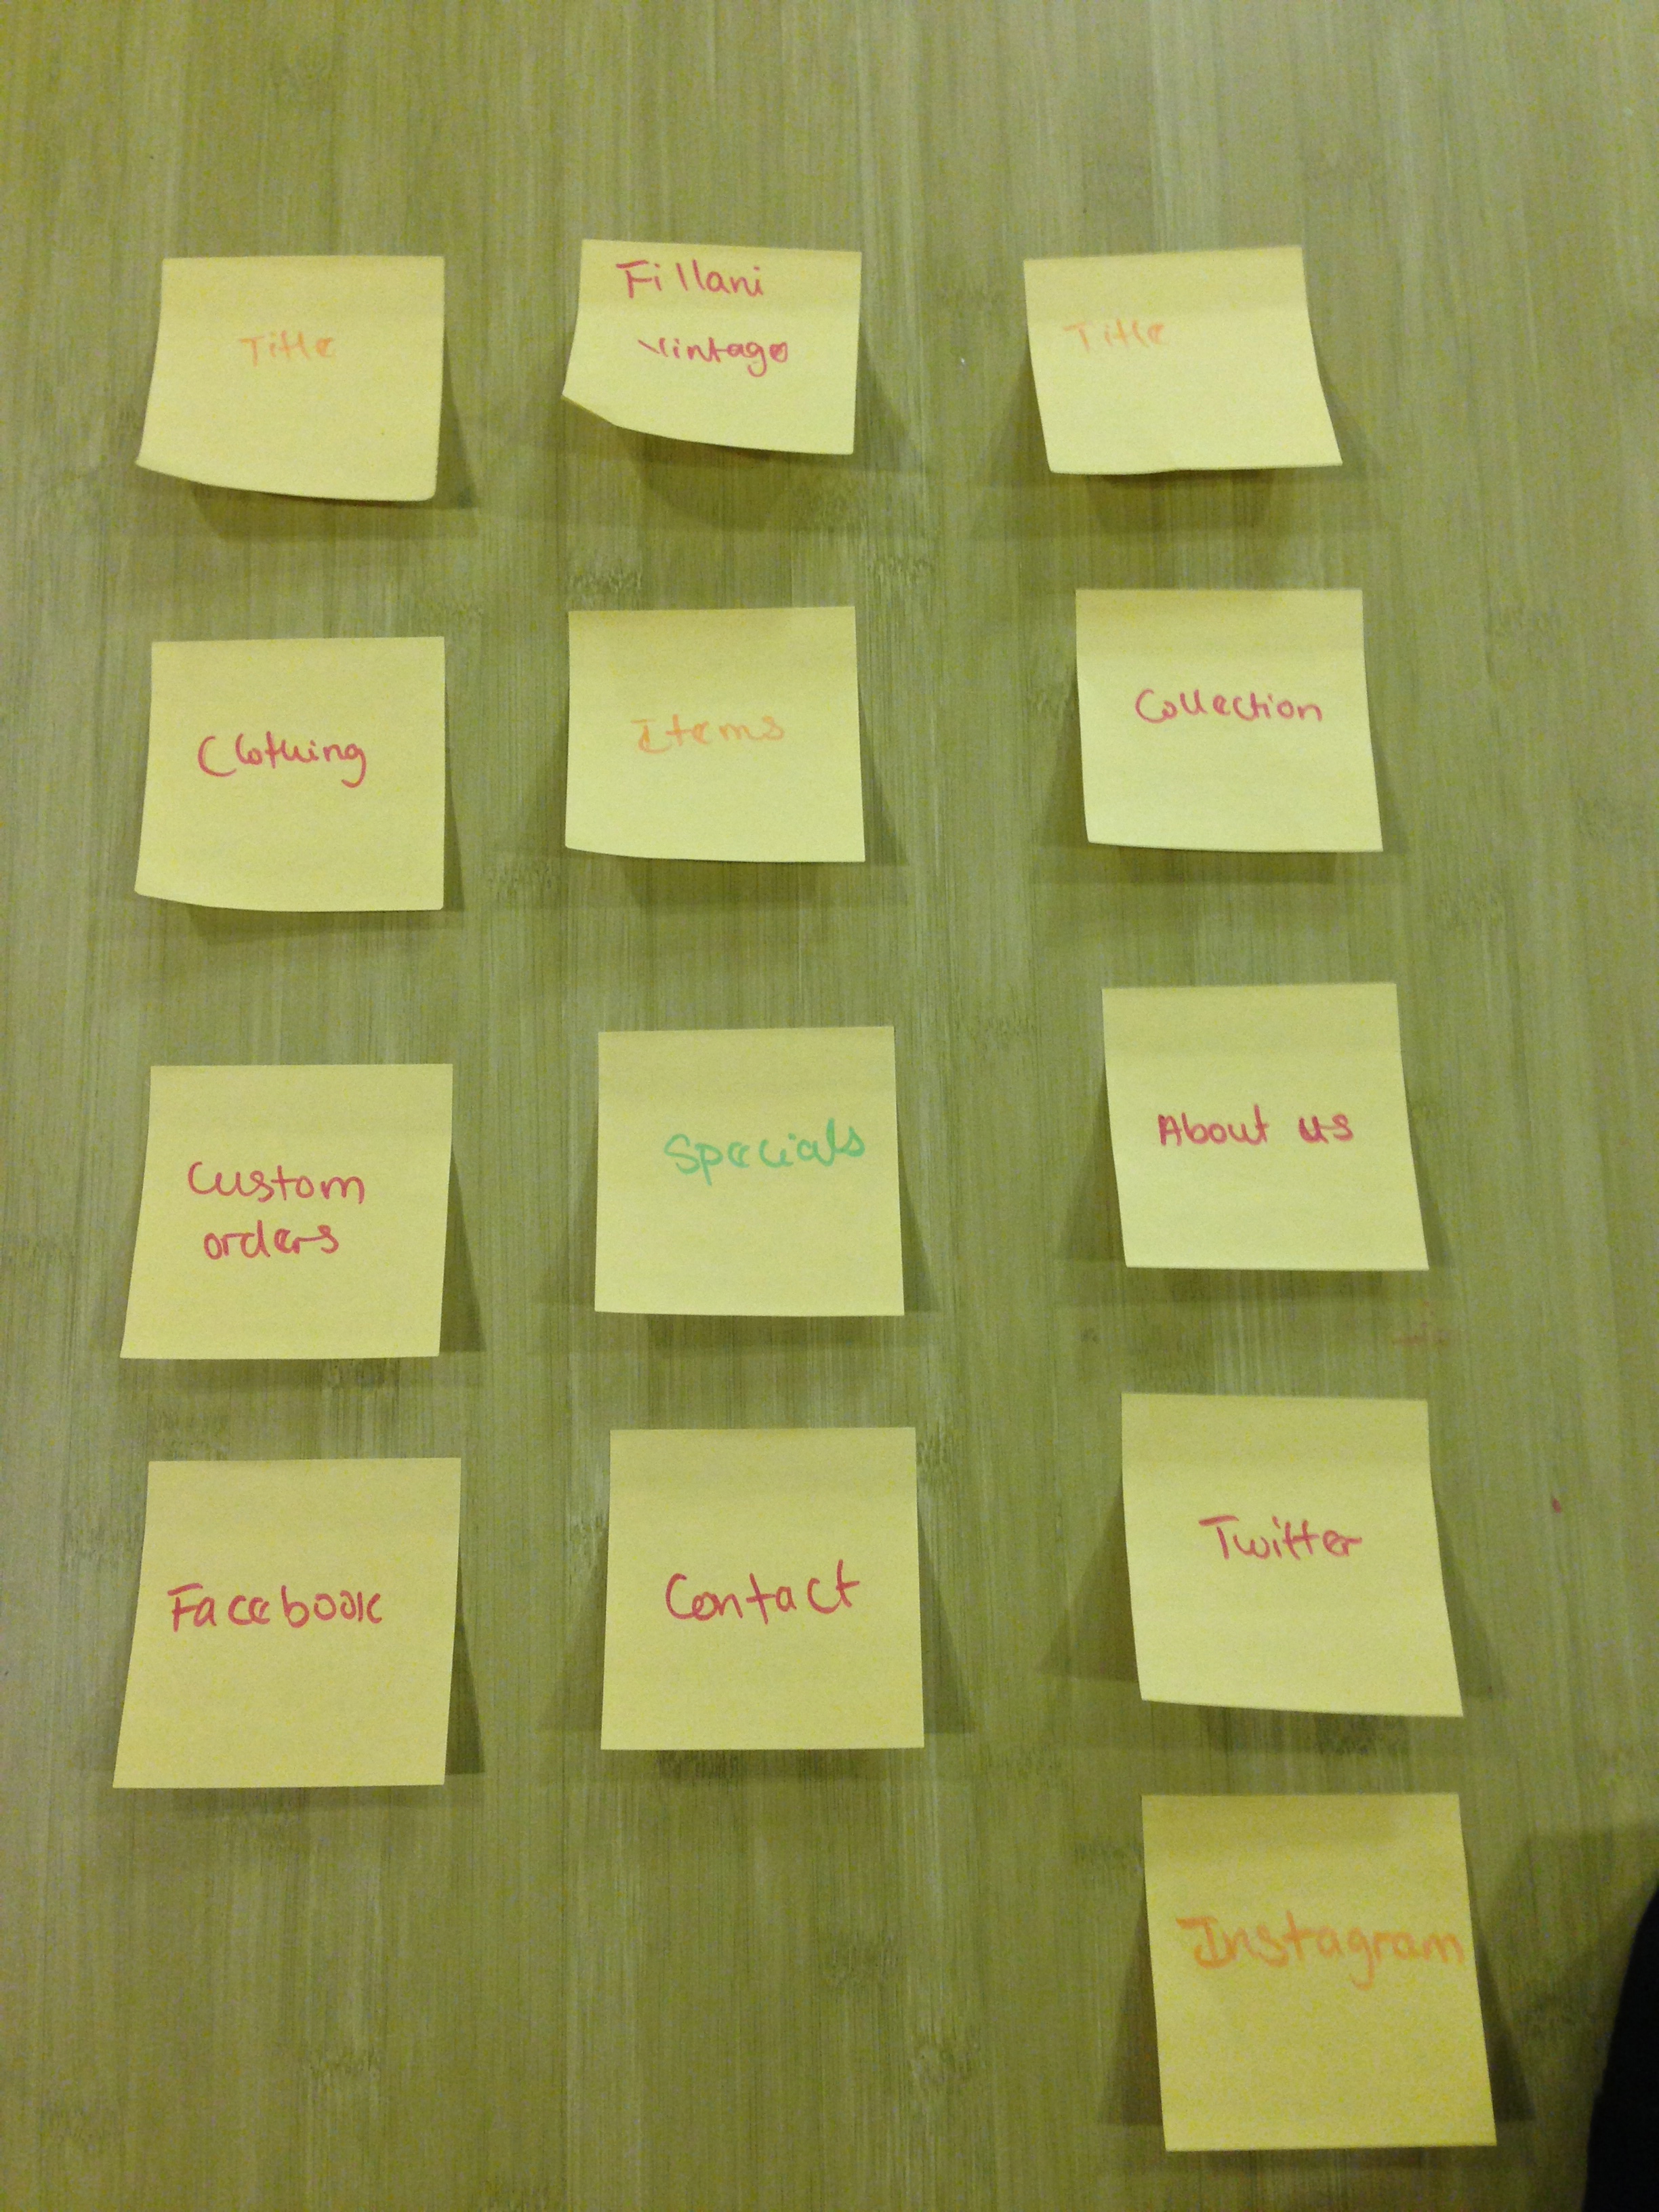 Title
Fillani
Vintage
Title
Clothing
Items
Collection
Custom
orders
Specials
About us
Facebook
Contact
Twitter
Instagram